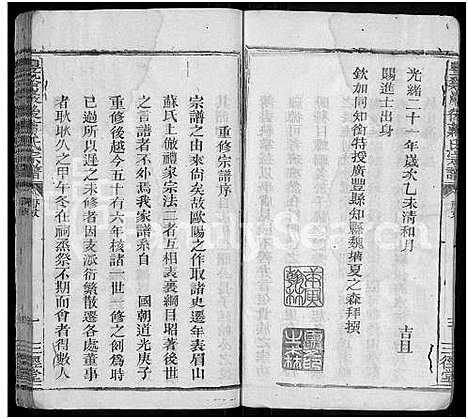 光緒二十一年歲次乙未清和月
吉旦
賜進士出身
欽加同知銜特授廣豐縣知縣魏
夏之森拜撰
重修宗譜序
宗譜之由來尚矣故歐陽之作取諸史遷年表眉山
蘇氏上倣禮家宗法二者互相表裏綱目昭著後世
之言譜者不外焉我家譜系自 國朝道光庚子
重修後越今五十有六年核諸一世一修之例為時
已過所以遲之未修者因支派衍繁散遷各處董事
者耿耿久之甲午冬在祠烝祭不期而會者得數人
三徑堂
FamilySearch